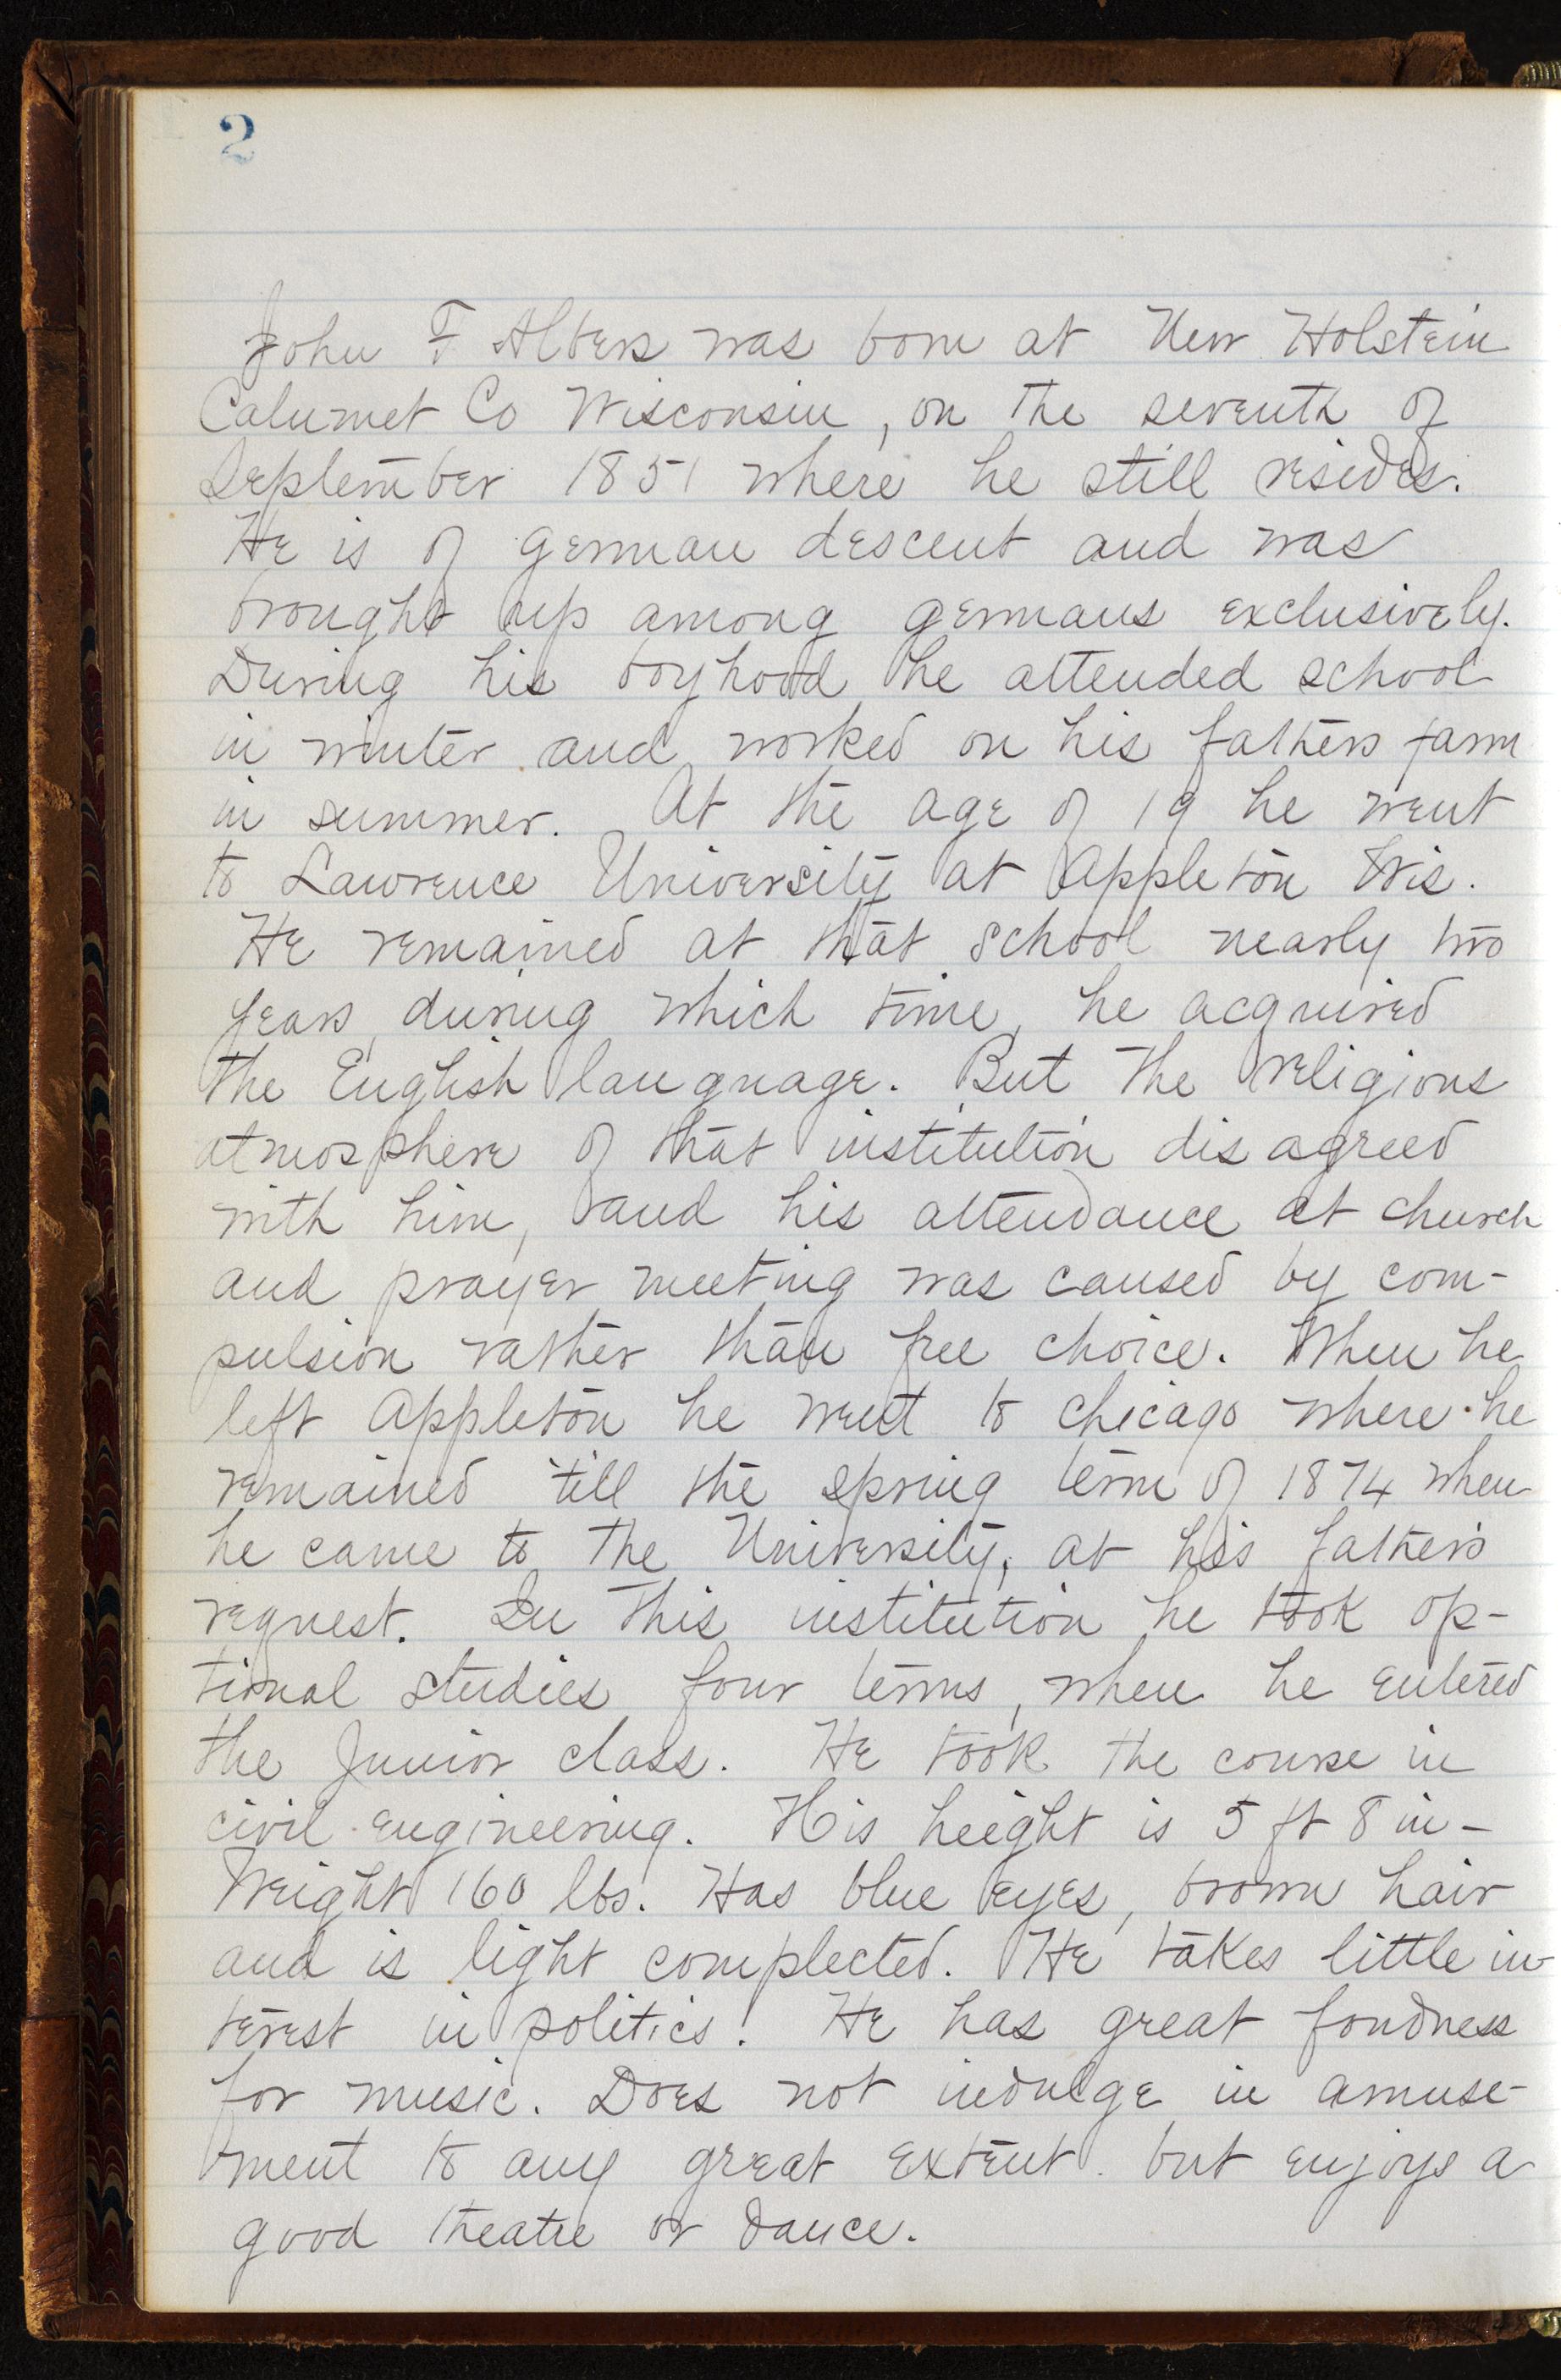 2
John F Albers was born at New Holstein
Calumet Co Wisconsin, on the seventh of
September 1851 where he still resides.
He is of german descent and was
brought up among germans exclusively.
During his boyhood he attended school
in winter and worked on his fathers farm
in summer. At the age of 19 he went
to Lawrence University at Appleton Wis.
He remained at that school nearly two
years, during which time, he acquired
the English language. But the religious
atmosphere of that institution disagreed
with him, and his attendance at church
and prayer meeting was caused by com-
pulsion rather than free choice. When he
left Appleton he went to Chicago where he
remained 'till the spring term of 1874 when
he came to the University, at his father's
request. In this institution he took op-
tional studies four terms, when he entered
the Junior class. He took the course in
civil engineering. His height is 5 ft 8 in-
Weight 160 lbs. Has blue eyes, brown hair
and is light complected. He takes little in-
terest in politics! He has great fondness
for music. Does not indulge in amuse-
ment to any great extent. but enjoys a
good theatre or dance.